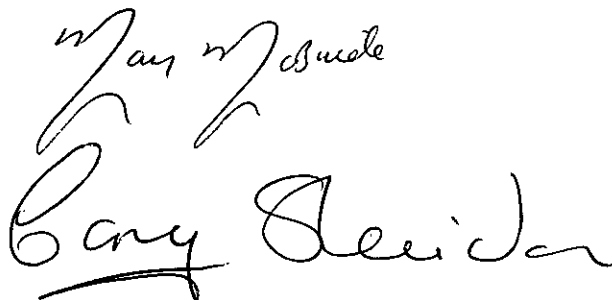 Mary McBride
Gary Sheridan